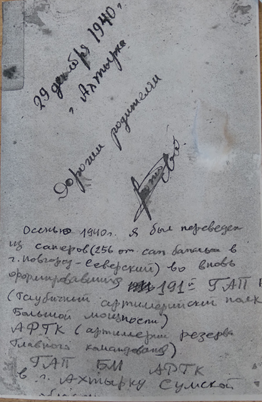 29 декабря 1940г.
г. Ахтырка
Дорогим родителям
Осенью 1940г. я был переведен
из саперов (256 от. сап. батальона в
г. Новгород-Северский) во вновь
сформировавший 191й ГАП
(Гаубичный артиллерийский полк
Большой мощности)
АРГК (артиллерии резерва
Главного командования)
ГАП БМ АРГК
в г. Ахтырка Сумской
области